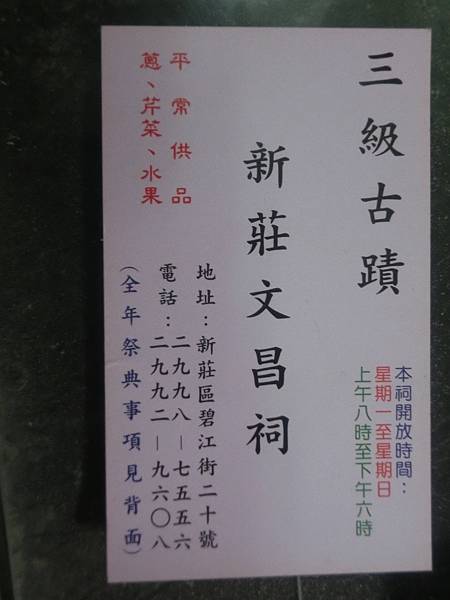 三級古蹟
本祠開放時間：
星期一至星期日
上午八時至下午六時
新莊文昌祠
平常供品
蔥、芹菜、水果
地址：新莊區碧江街二十號
電話：二九九八－七五五六
二九九二－九六〇八
（全年祭典事項見背面）